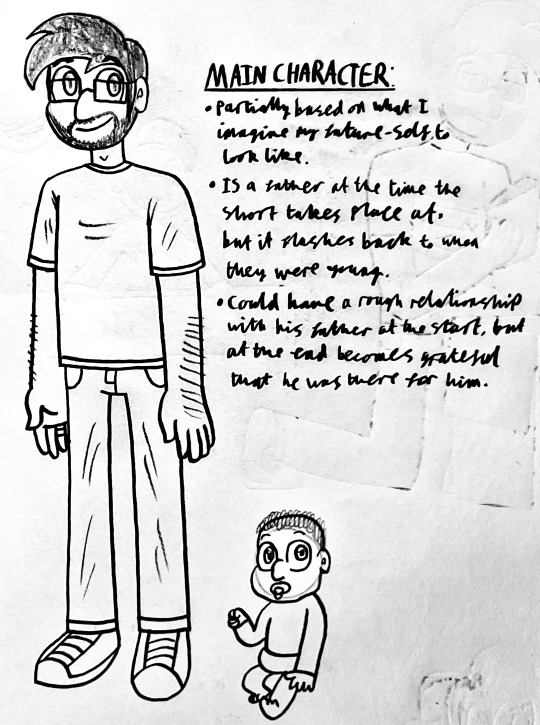 MAIN CHARACTER:
• Partially based on what I
imagine my future-self to
look like.
• Is a father at the time the
short takes place at,
but it flashes back to when
they were young.
• Could have a rough relationship
with his father at the start, but
at the end becomes grateful
that he was there for him.